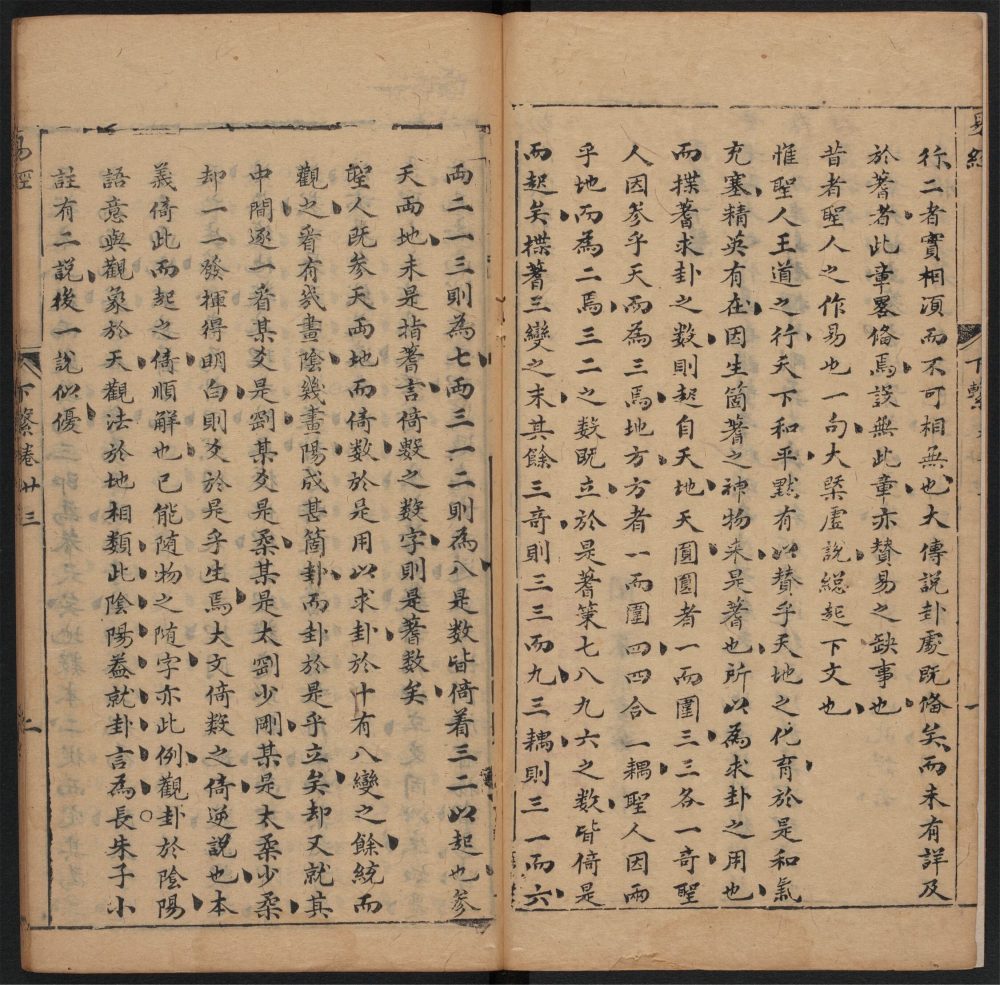 易經
下繫
一
行二者實相湏而不可相無也大傳說卦處既俻矣而未有詳及
於蓍者此章畧俻焉設無此章亦賛易之缺事也
昔者聖人之作易也一句大槩虛說緫起下文也
惟聖人王道之行天下和平默有以賛乎天地之化育於是和氣
充塞精英有在因生箇蓍之神物来是蓍也所以為求卦之用也
而揲蓍求卦之数則起自天地天圓圓者一而圍三三各一奇聖
人因参乎天而為三焉地方方者一而圍四四合二耦聖人因兩
乎地而為二焉三二之数既立於是蓍策七八九六之数皆倚是
而起矣揲蓍三變之末其餘三奇則三三而九三耦則三二而六
兩二一三則為七兩三一二則為八是数皆倚着三二以起也参
天兩地未是指蓍言倚數之数字則是蓍数矣
聖人既参天兩地而倚数於是用以求卦於十有八變之餘統而
觀之看有幾畫陰幾畫陽成甚箇卦而卦於是乎立矣却又就其
中間逐一看某爻是剛某爻是柔某是太剛少剛某是太柔少柔
却一二發揮得明白則爻於是乎生焉大文倚数之倚逆說也本
義倚此而起之倚順解也已能随物之随字亦此例觀卦於陰陽
語意與觀象於天觀法於地相類此陰陽盖就卦言為長朱子小
註有二說後一說似優
易經
下繫卷廿三
二